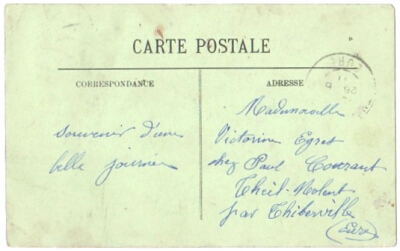 CARTE POSTALE
CORRESPONDANCE
ADRESSE
Souvenir d'une
belle journée
Mademoiselle
Victorine Egret
chez Paul Conrant
Theil-Nolent
par Thiberville
(Eure)